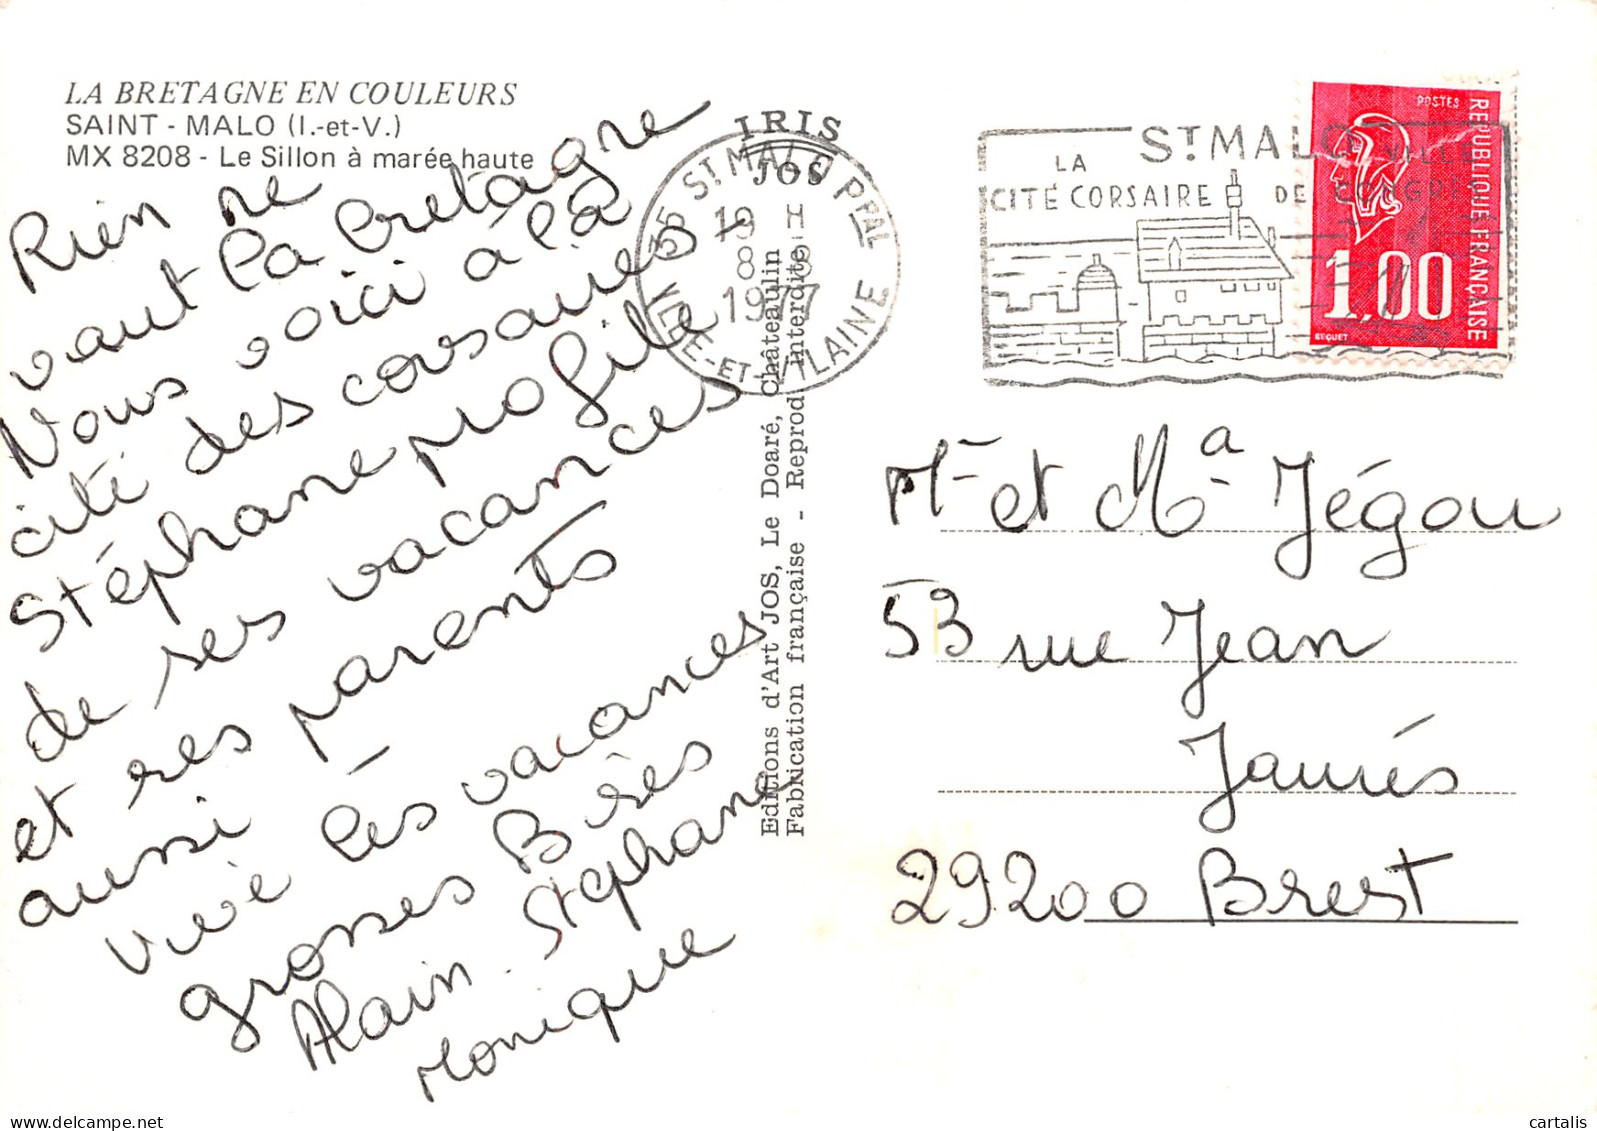 LA BRETAGNE EN COULEURS
SAINT - MALO (I.-et-V.)
MX 8208 - Le Sillon à marée haute
Rien ne
vaut la bretagne
Nous voici à la
cité des corsaires
Stéphane profite
de ses vacances
et ses parents
aussi
vive les vacances
grosses Bises
Alain - Stéphane
Monique
IRIS
JOS
35 ST MALO PPAL
19 H
8
1977
ILLE-ET-VILAINE
Editions d'Art JOS, Le Doaré, Châteaulin
Fabrication française - Reprod. Interdite
ST MALO
LA CITÉ CORSAIRE
VILLE DE CONGRES
POSTES
REPUBLIQUE FRANÇAISE
1,00
BEQUET
Mr et Ma Jégou
53 rue Jean
Jaurés
29200 Brest
cartalis